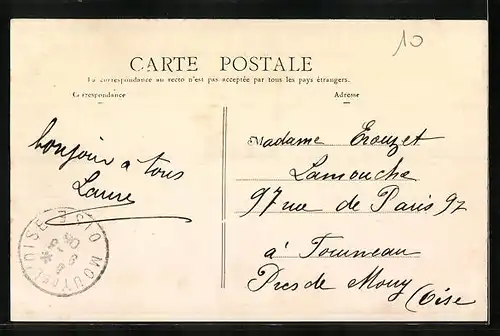 10
CARTE POSTALE
La correspondance au recto n'est pas acceptée par tous les pays étrangers.
Correspondance
Adresse
bonjour a tous
Laure
Madame Erouzet
Lamouche
97 rue de Paris 97
à
Près de Mouy
(Oise
MOUY OISE